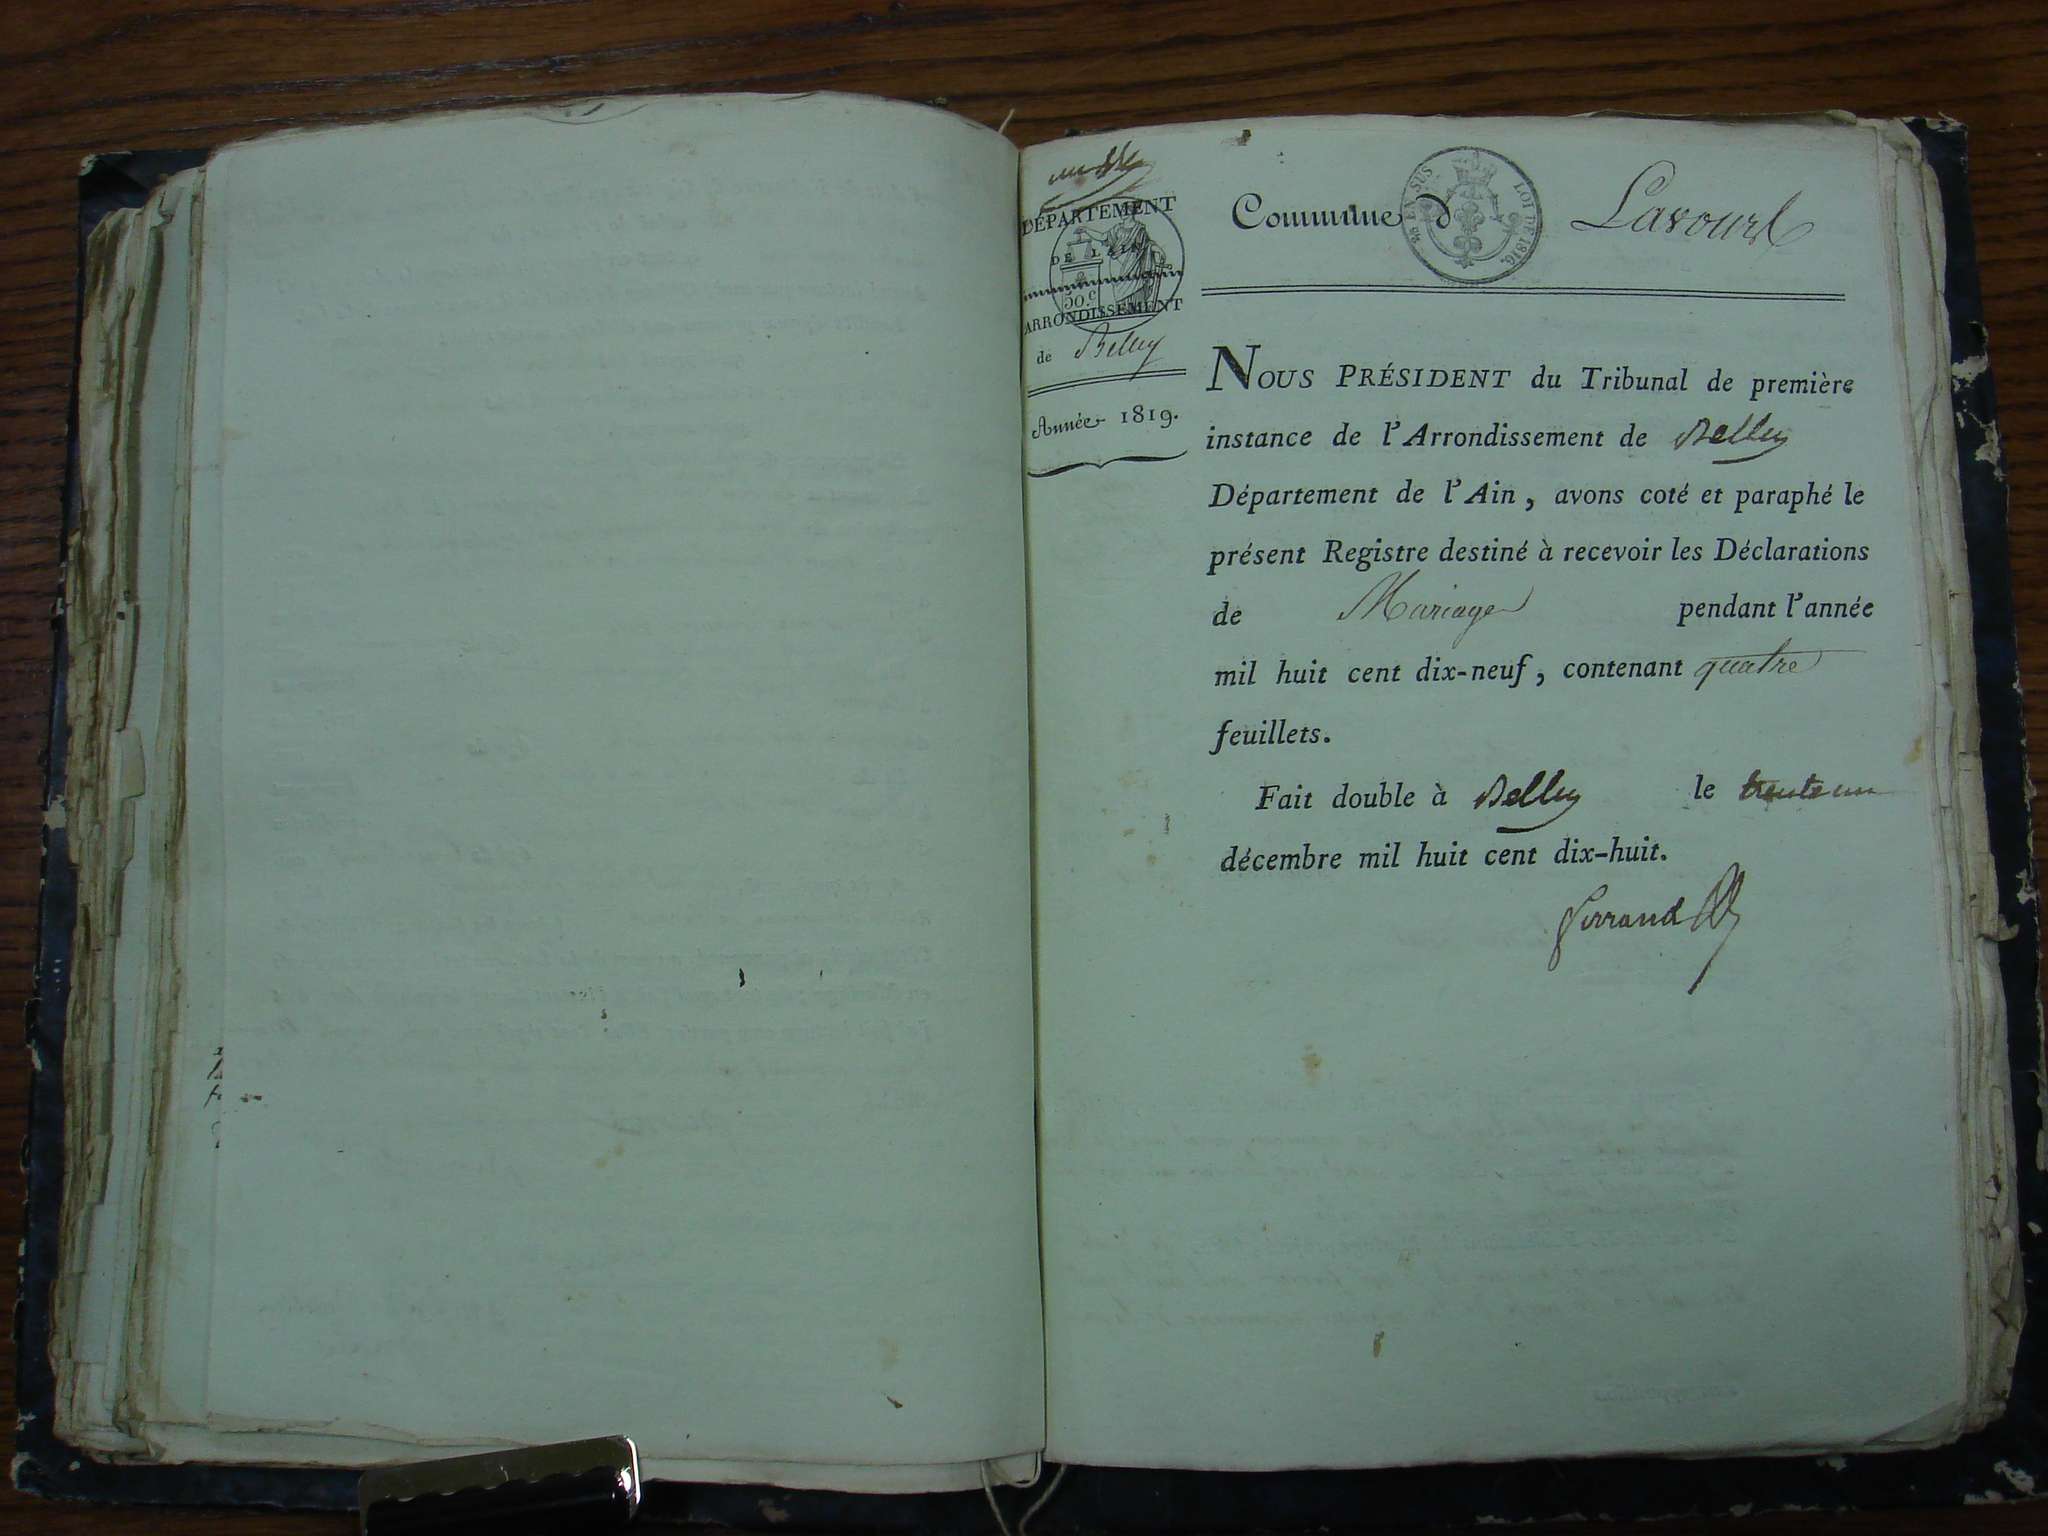 DÉPARTEMENT
DE L'AIN
50.c
ARRONDISSEMENT
de Belley
Année 1819.
Commune d Lavours
25 EN SUS LOI DE 1816.
NOUS PRÉSIDENT du Tribunal de première
instance de l'Arrondissement de Belley
Département de l'Ain, avons coté et paraphé le
présent Registre destiné à recevoir les Déclarations
de Mariage pendant l'année
mil huit cent dix-neuf, contenant quatre
feuillets.
Fait double à Belley le trente un
décembre mil huit cent dix-huit.
Ferrand